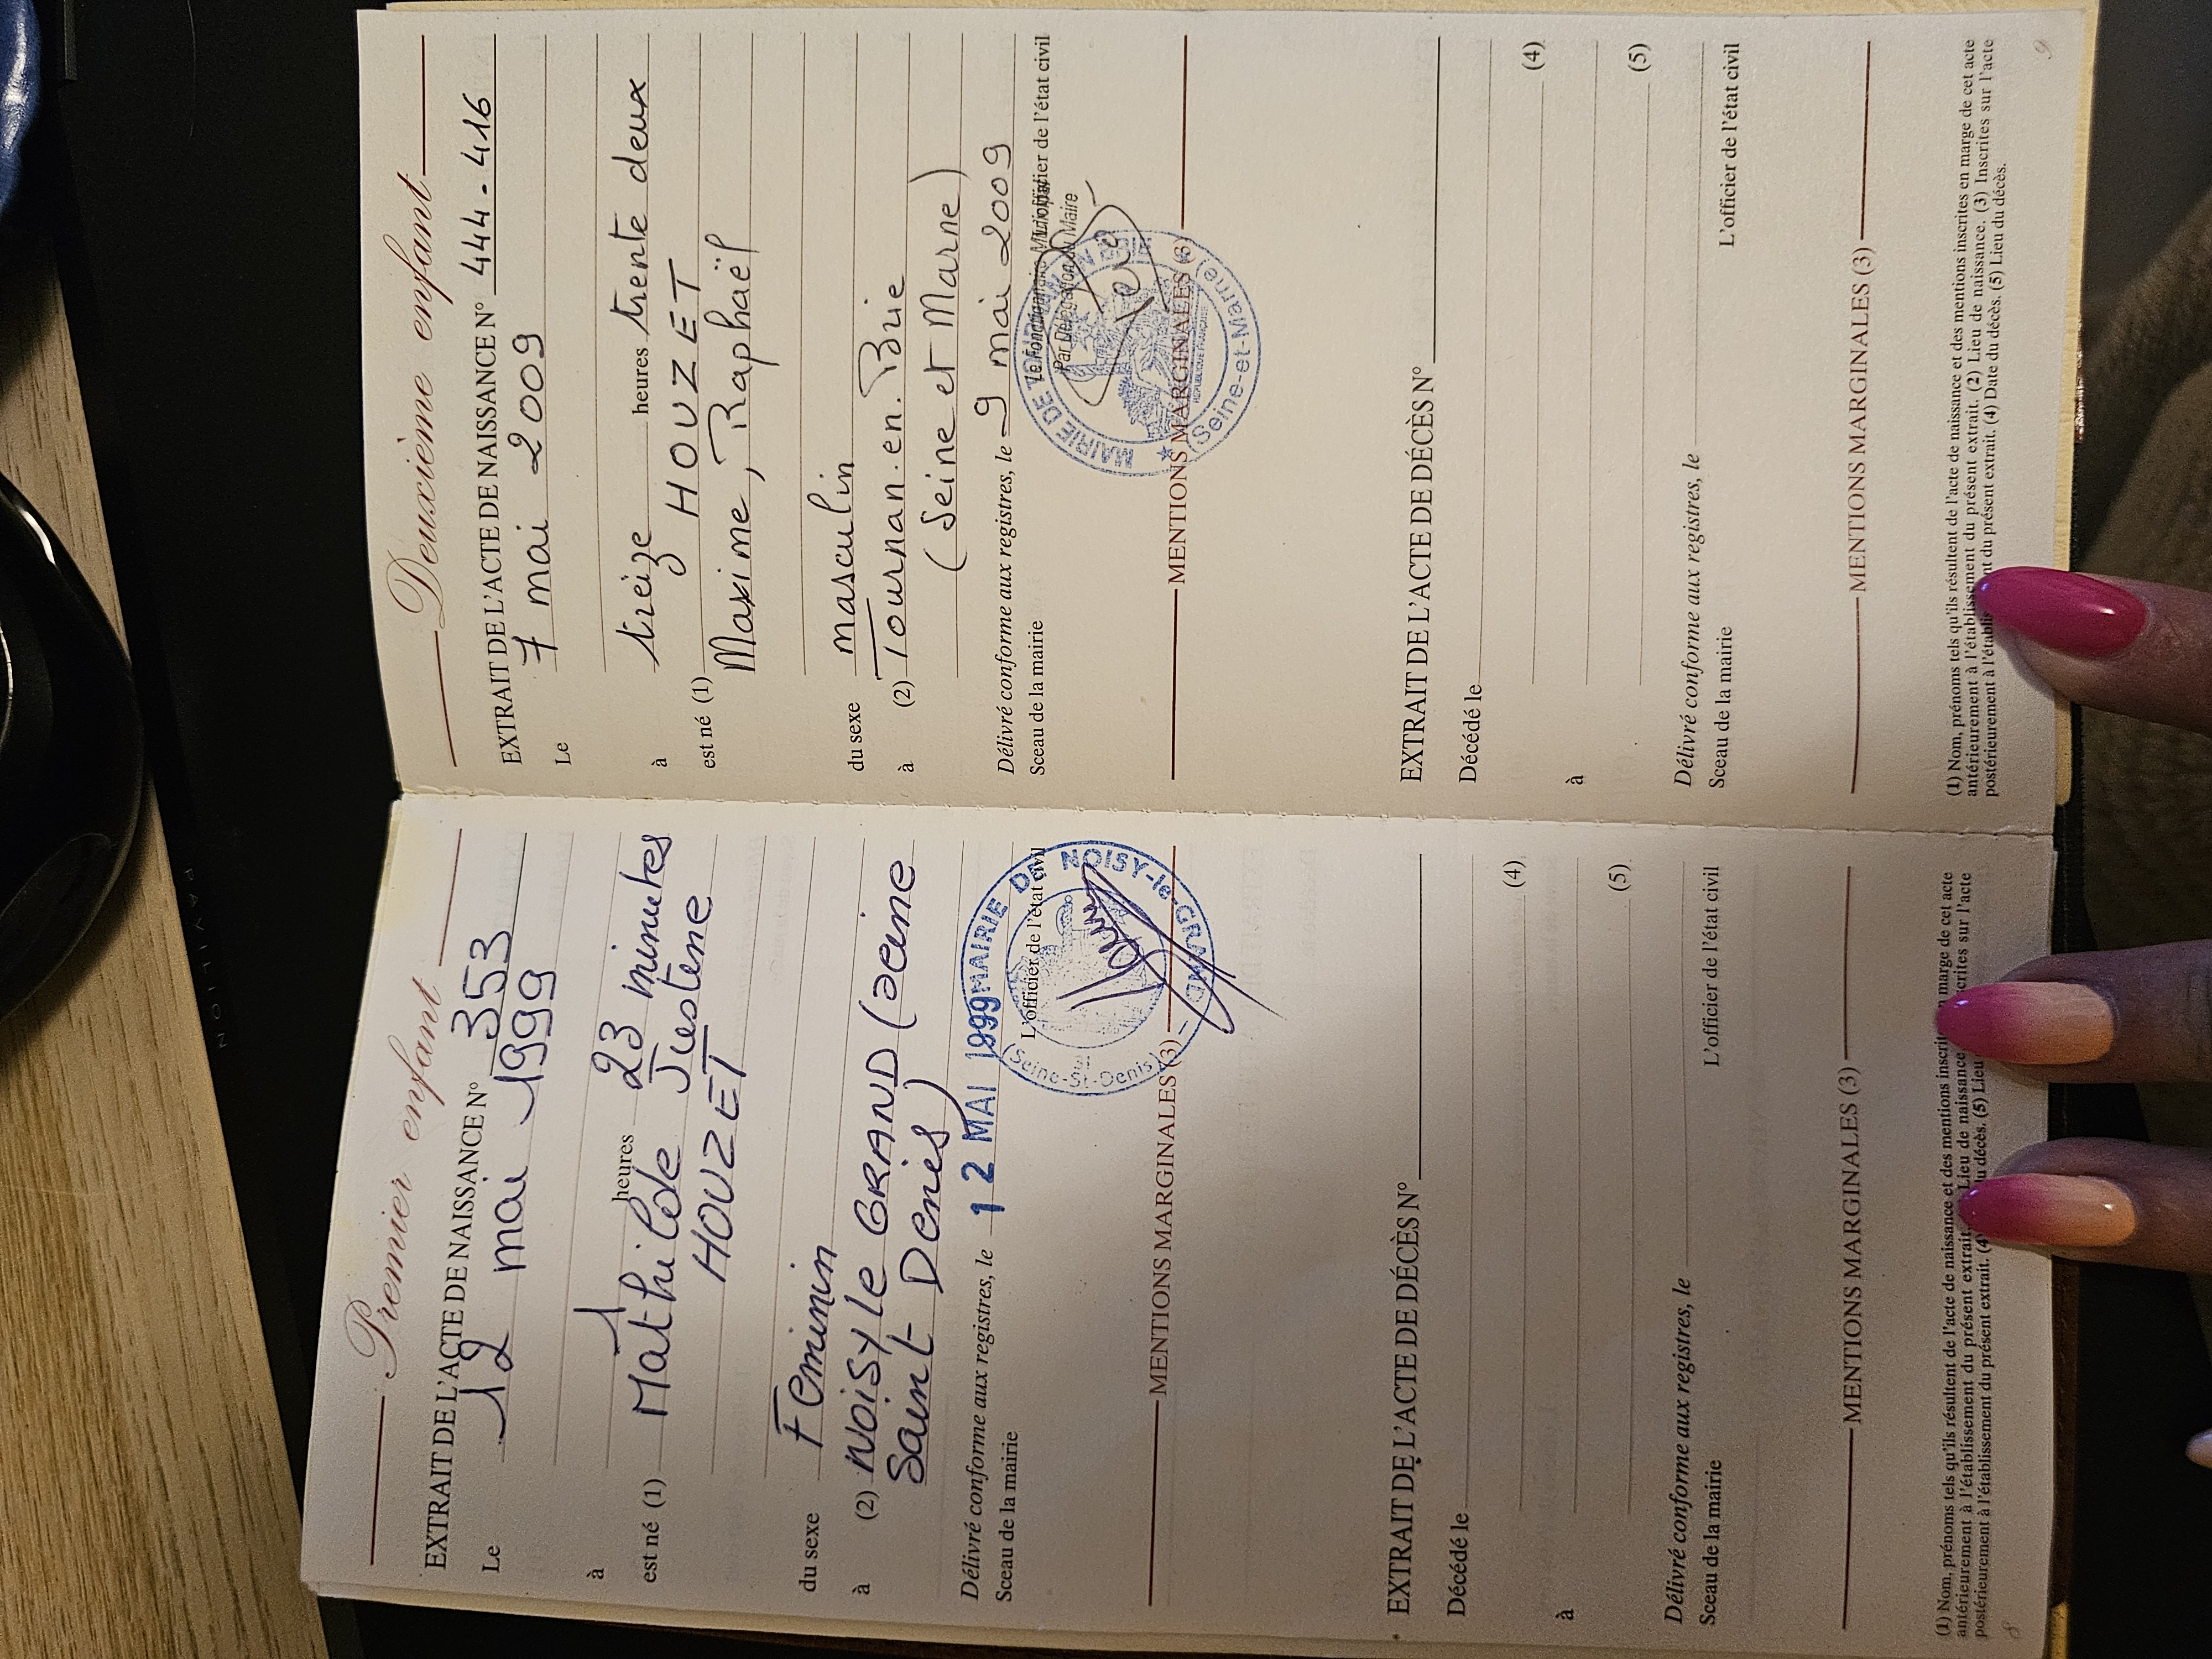 Premier enfant
EXTRAIT DE L'ACTE DE NAISSANCE N° 353
Le 12 mai 1999
à 1 heures 23 minutes
est né (1) Mathilde Justine
HOUZET
du sexe Féminin
à (2) NOISY le GRAND (Seine
Saint Denis)
Délivré conforme aux registres, le 12 MAI 1999
Sceau de la mairie L'officier de l'état civil
MAIRIE DE NOISY-le-GRAND
(Seine-St-Denis)
MENTIONS MARGINALES (3)
EXTRAIT DE L'ACTE DE DÉCÈS N°
Décédé le
(4)
à
(5)
Délivré conforme aux registres, le
Sceau de la mairie L'officier de l'état civil
MENTIONS MARGINALES (3)
(1) Nom, prénoms tels qu'ils résultent de l'acte de naissance et des mentions inscrites marge de cet acte
antérieurement à l'établissement du présent extrait. Lieu de naissance crites sur l'acte
postérieurement à l'établissement du présent extrait. (4) du décès. (5) Lieu
8
Deuxième enfant
EXTRAIT DE L'ACTE DE NAISSANCE N° 444-416
Le 7 mai 2009
à treize heures trente deux
est né (1) HOUZET
Maxime, Raphaël
du sexe masculin
à (2) Tournan-en-Brie
(Seine et Marne)
Délivré conforme aux registres, le 9 mai 2009
Sceau de la mairie Le Fonctionnaire Municipal L'officier de l'état civil
Par Délégation du Maire
MAIRIE DE TOURNAN EN BRIE
(Seine-et-Marne)
MENTIONS MARGINALES (3)
EXTRAIT DE L'ACTE DE DÉCÈS N°
Décédé le
(4)
à
(5)
Délivré conforme aux registres, le
Sceau de la mairie L'officier de l'état civil
MENTIONS MARGINALES (3)
(1) Nom, prénoms tels qu'ils résultent de l'acte de naissance et des mentions inscrites en marge de cet acte
antérieurement à l'établissement du présent extrait. (2) Lieu de naissance. (3) Inscrites sur l'acte
postérieurement à l'établissement du présent extrait. (4) Date du décès. (5) Lieu du décès.
9
PAVILION